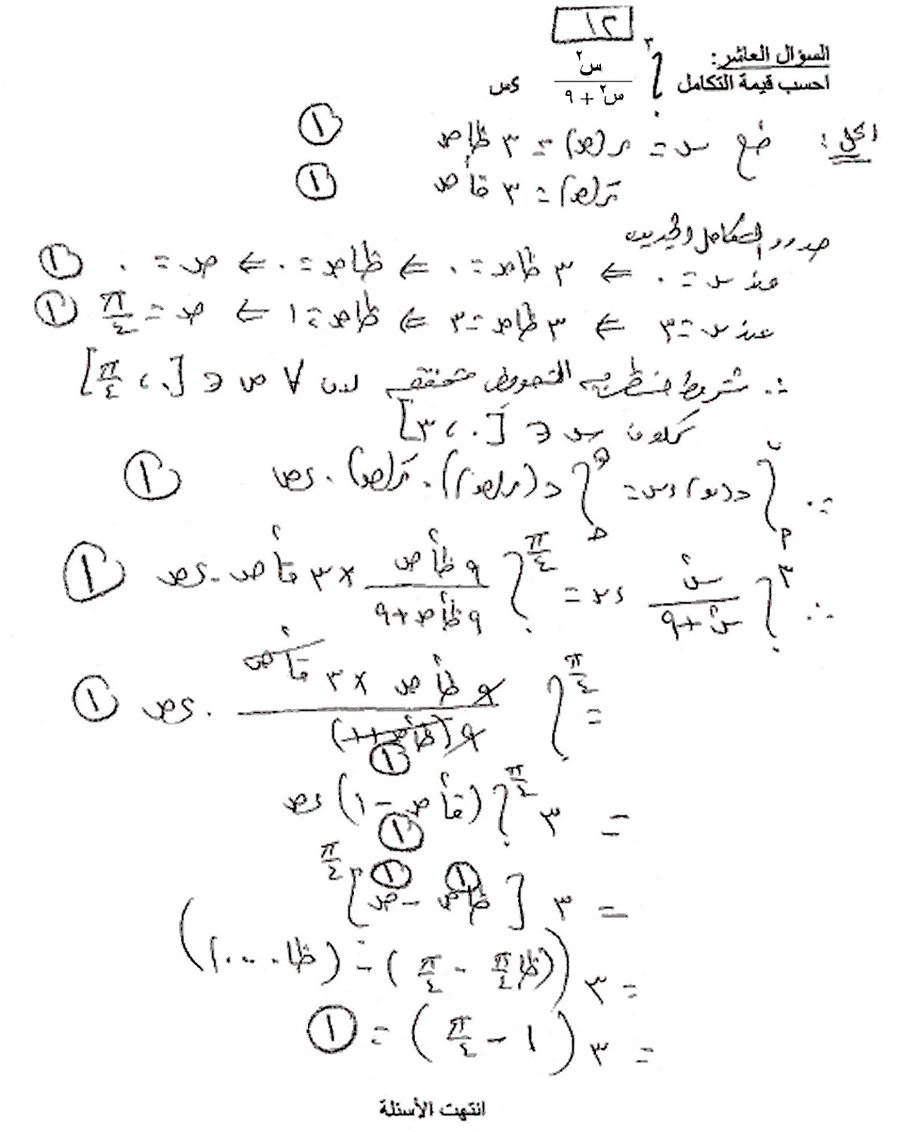 ١٢
السؤال العاشر:
احسب قيمة التكامل ∫₀³ س² / (س² + ٩) ءس
الحل: ضع س = ر(ص) = ٣ ظاص ①
رَ(ص) = ٣ قا²ص ①
حدود التكامل الجديد
عند س = ٠ ⇐ ٣ ظاص = ٠ ⇐ ظاص = ٠ ⇐ ص = ٠ ①
عند س = ٣ ⇐ ٣ ظاص = ٣ ⇐ ظاص = ١ ⇐ ص = π/٤ ①
∴ شروط التعويض متحققة لان ∀ ص ∈ [٠ ، π/٤]
س ∈ [٠ ، ٣]
∵ ∫ د(س) ءس = ∫ د(ر(ص)) . رَ(ص) . ءص ①
∴ ∫₀³ س² / (س² + ٩) ءس = ∫₀^(π/٤) ٩ ظا²ص / (٩ ظا²ص + ٩) × ٣ قا²ص . ءص ①
= ∫₀^(π/٤) ٩ ظا²ص × ٣ قا²ص / ٩(ظا²ص + ١) . ءص ①
①
= ٣ ∫₀^(π/٤) (قا²ص − ١) ءص
①
① ①
= ٣ [ظاص − ص]₀^(π/٤)
= ٣ ((ظا π/٤ − π/٤) − (ظا٠ − ٠))
= ٣ (١ − π/٤) = ①
انتهت الأسئلة